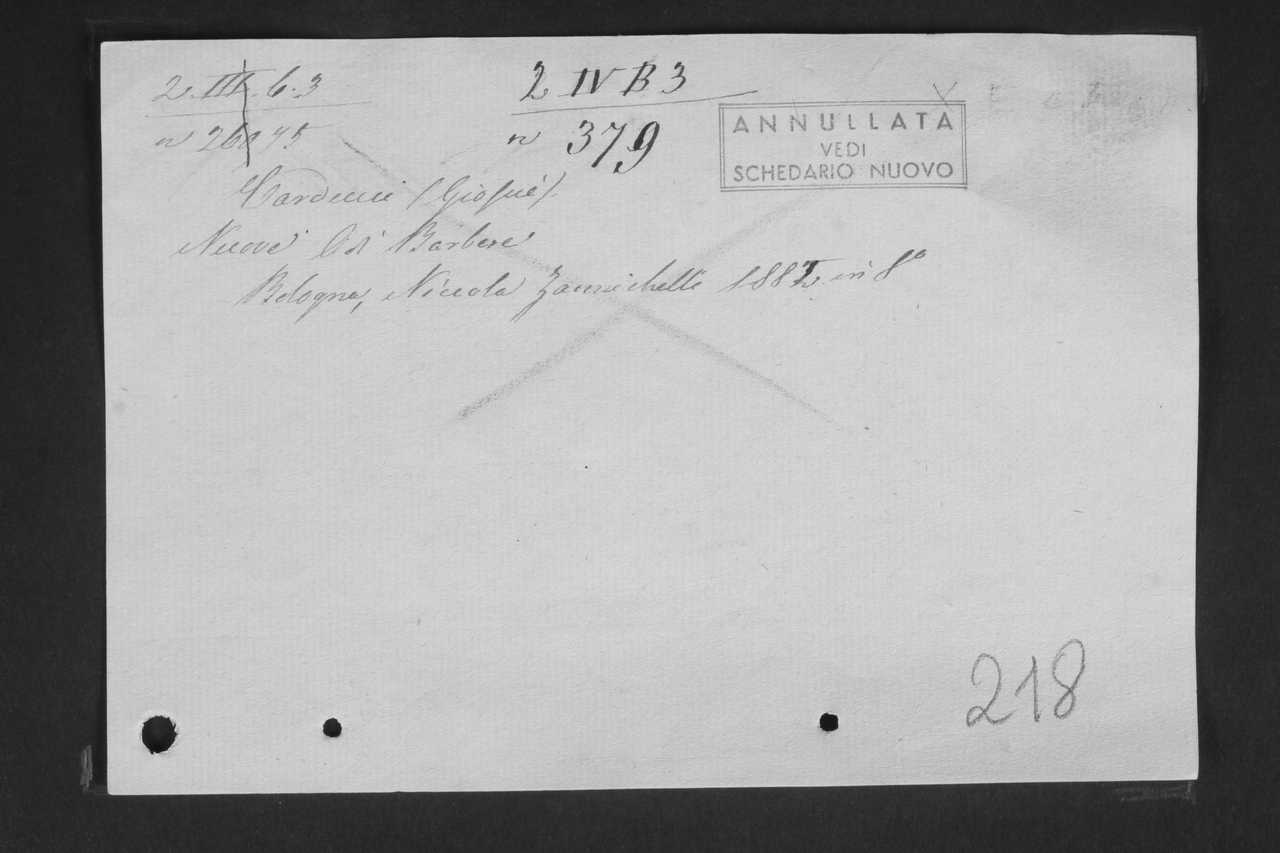 2. III. 6. 3
2 IV B 3
n 26045
n 379
ANNULLATA
VEDI
SCHEDARIO NUOVO
Carducci (Giosuè).
Nuove Odi Barbare
Bologna, Nicola Zanichelli 1882 in 8°
218